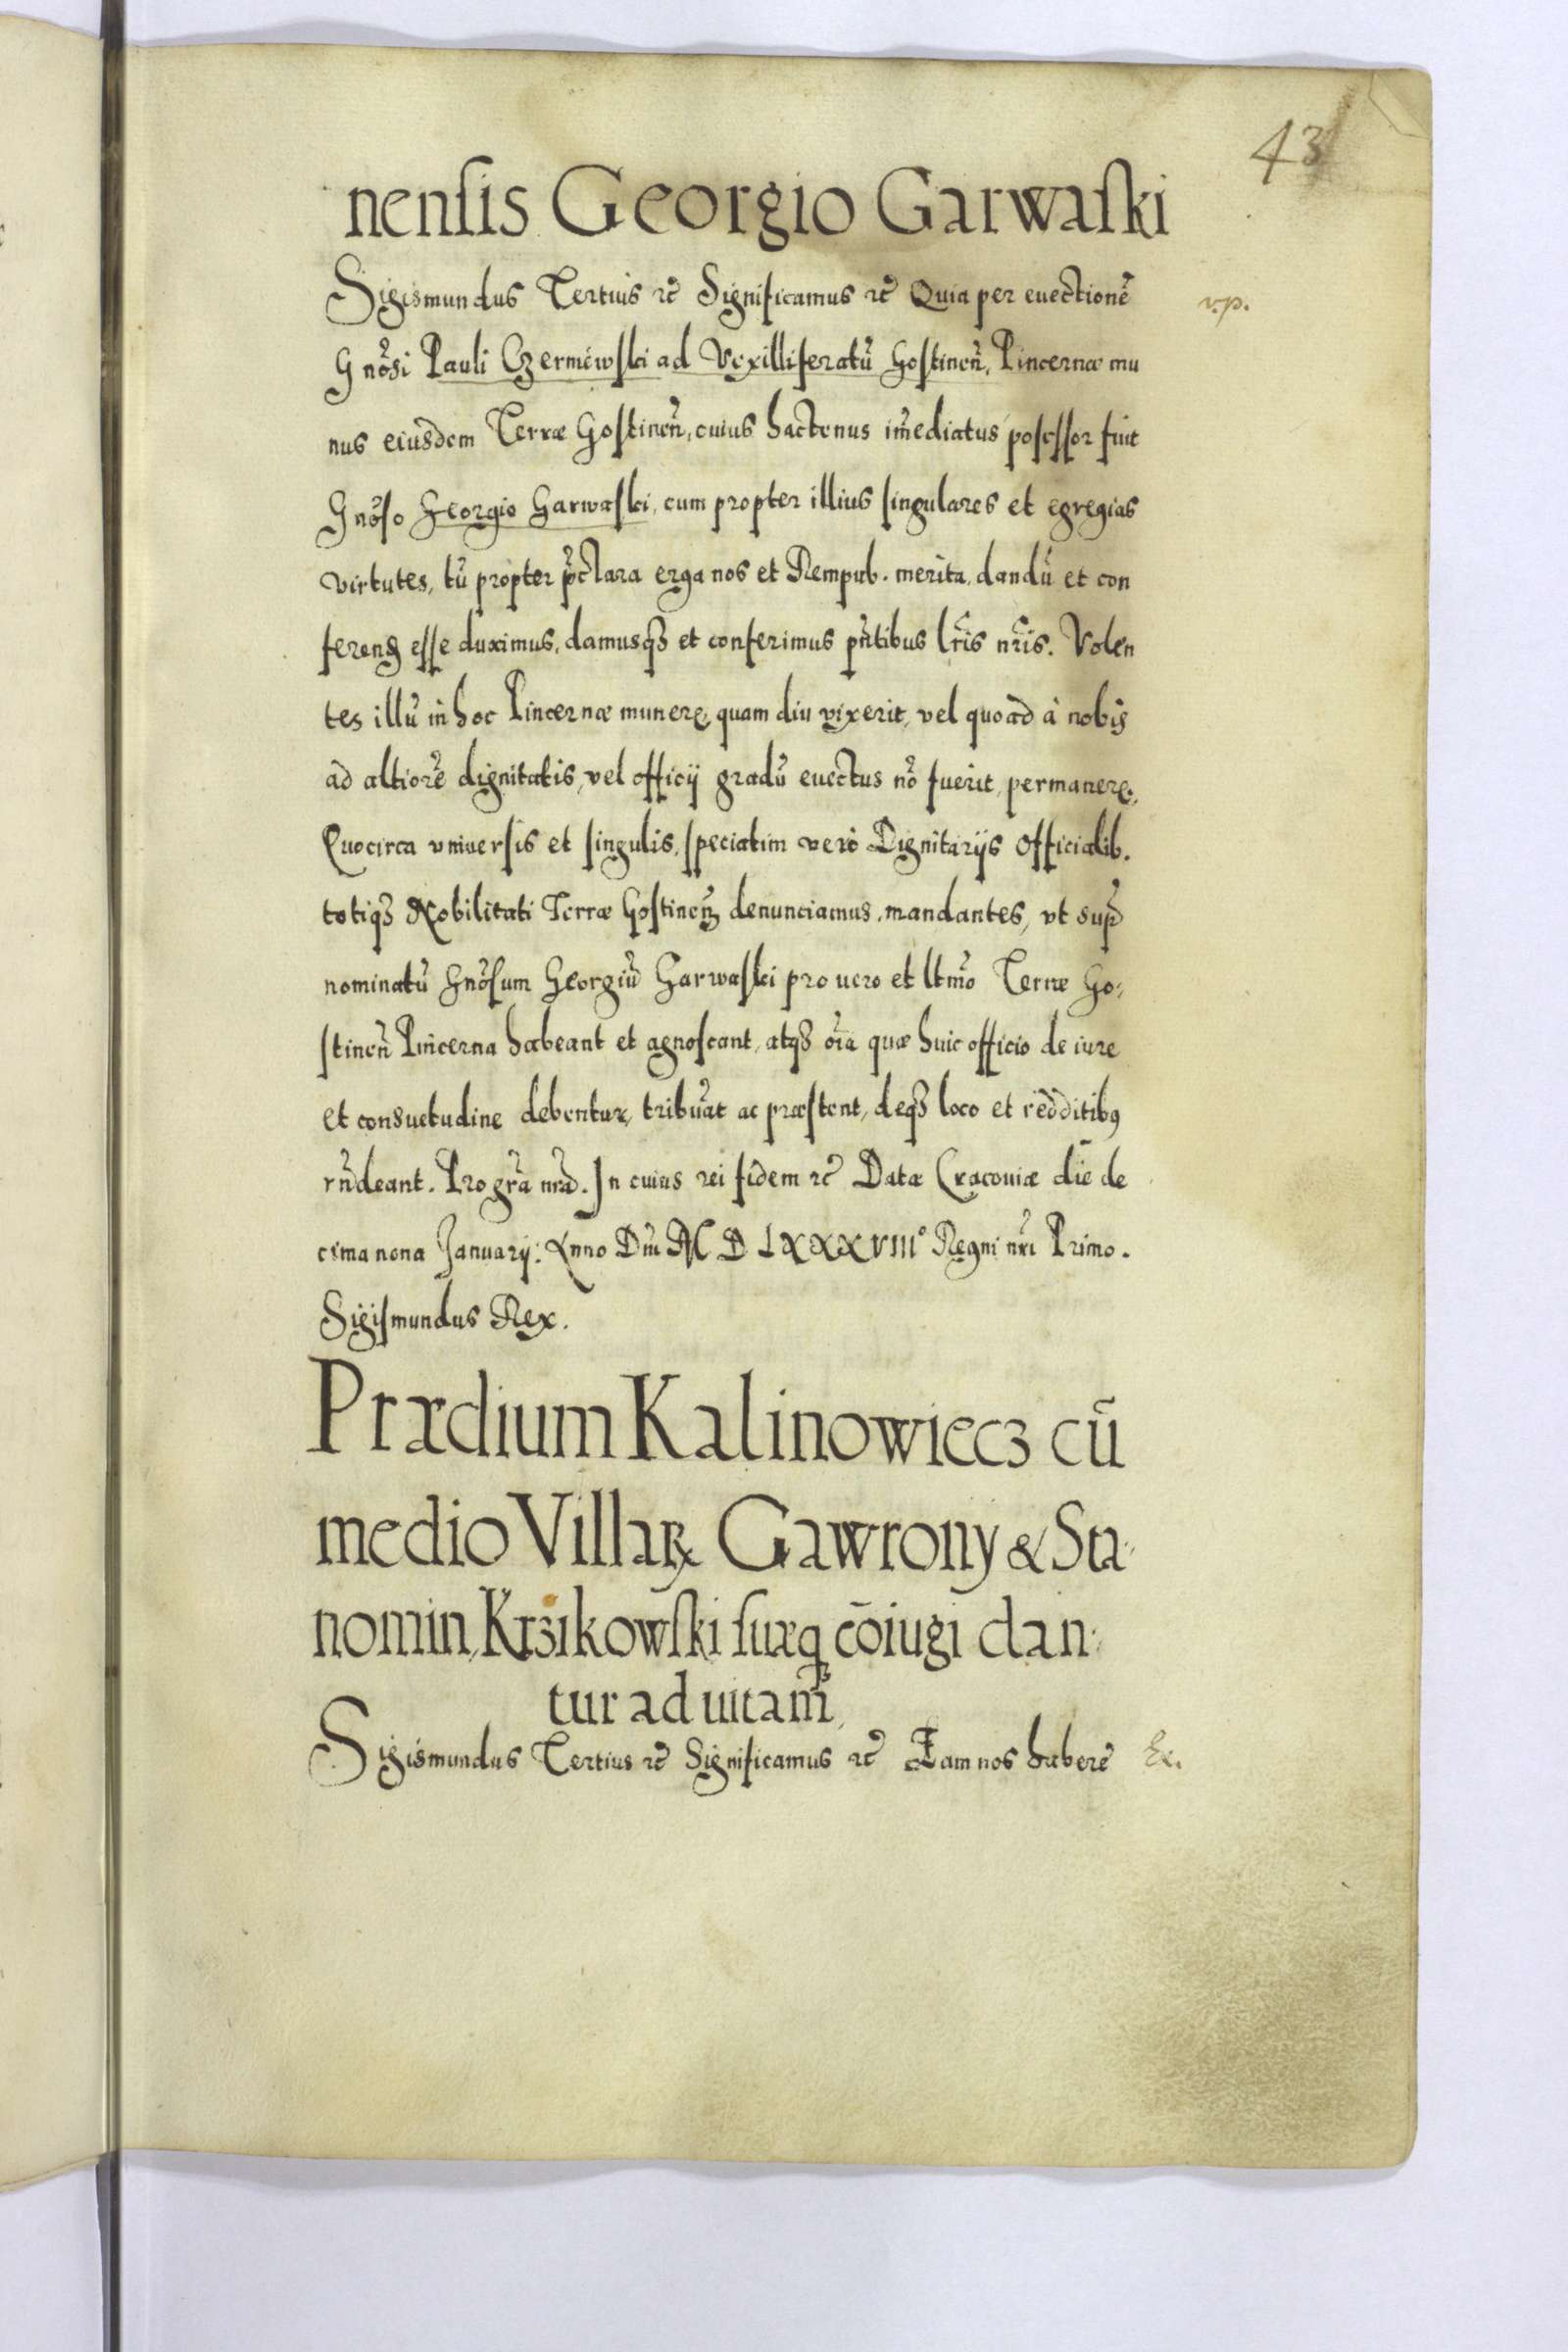 43
nenſis Georgio Garwaſki
Sigismundus Tertius rc̃ Significamus rc̃ Quia per euectionẽ
v.p.
Gnõsi Pauli Czermẽwski ad Vexilliferatũ Gostineñ, Pincernæ mu
nus eiusdem Terræ Gostineñ, cuius hactenus im̃ediatus posessor fuit
Gnõso Georgio Garwaski, cum propter illius singulares et egregias
virtutes, tũ propter p̃clara erga nos et Rempub. merita, dandũ et con
ferenđ esse duximus, damusqꝫ et conferimus pñtibus lr̃is nr̃is. Volen
tes illũ in hoc Pincernæ munere, quam diu vixerit, vel quoad à nobis
ad altiorẽ dignitatis, vel officij gradũ euectus nõ fuerit, permanere.
Quocirca vniuersis et singulis, speciatim vero Dignitarijs Officialib.
totiqꝫ Nobilitati Terræ Gostineñ denunciamus, mandantes, vt supr̃
nominatũ Gnõsum Georgiũ Garwaski pro uero et ltm̃o Terræ Go⸗
stineñ Pincerna habeant et agnoscant, atqꝫ oĩa quæ huic officio de iure
et consuetudine debentur, tribuãt ac præstent, deqꝫ loco et redditibꝰ
rñdeant. Pro gr̃a nr̃a. In cuius rei fidem rc̃ Datæ Cracouiæ die de
cima nona Januarij. Anno Dñi M D LXXXVIII° Regni nr̃i Primo.
Sigismundus Rex.
Prædium Kalinowiecz cũ
medio Villaꝝ Gawrony & Sta⸗
nomin, Krzikowſki ſuæqꝫ cõiugi dan⸗
tur ad uitam̃
Sigismundus Tertius rc̃ Significamus rc̃ Eam nos habere
Ex.